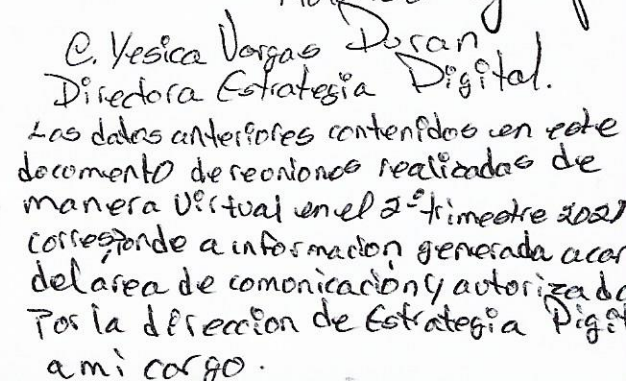 C. Yesica Vargas Duran
Directora Estrategia Digital.
Los datos anteriores contenidos en este
documento de reuniones realizadas de
manera virtual en el 2º trimestre 2021
corresponde a informacion generada acar
del area de comunicación y autorizada
Por la direccion de Estrategia Digit
a mi cargo.